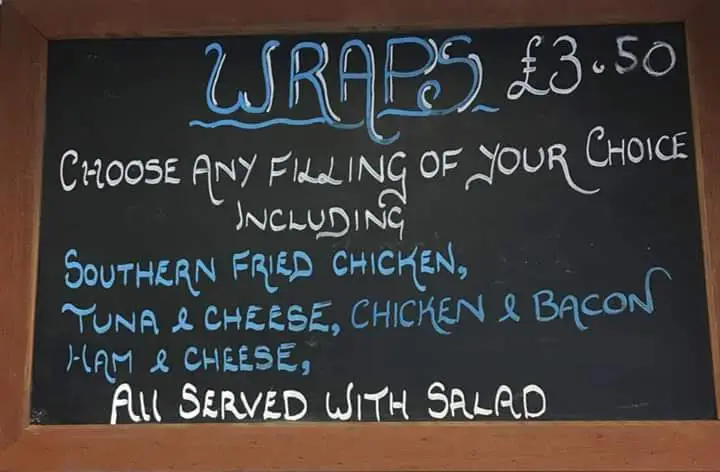 WRAPS £3.50
CHOOSE ANY FILLING OF YOUR CHOICE
INCLUDING
SOUTHERN FRIED CHICKEN,
TUNA & CHEESE, CHICKEN & BACON
HAM & CHEESE,
All SERVED WITH SALAD